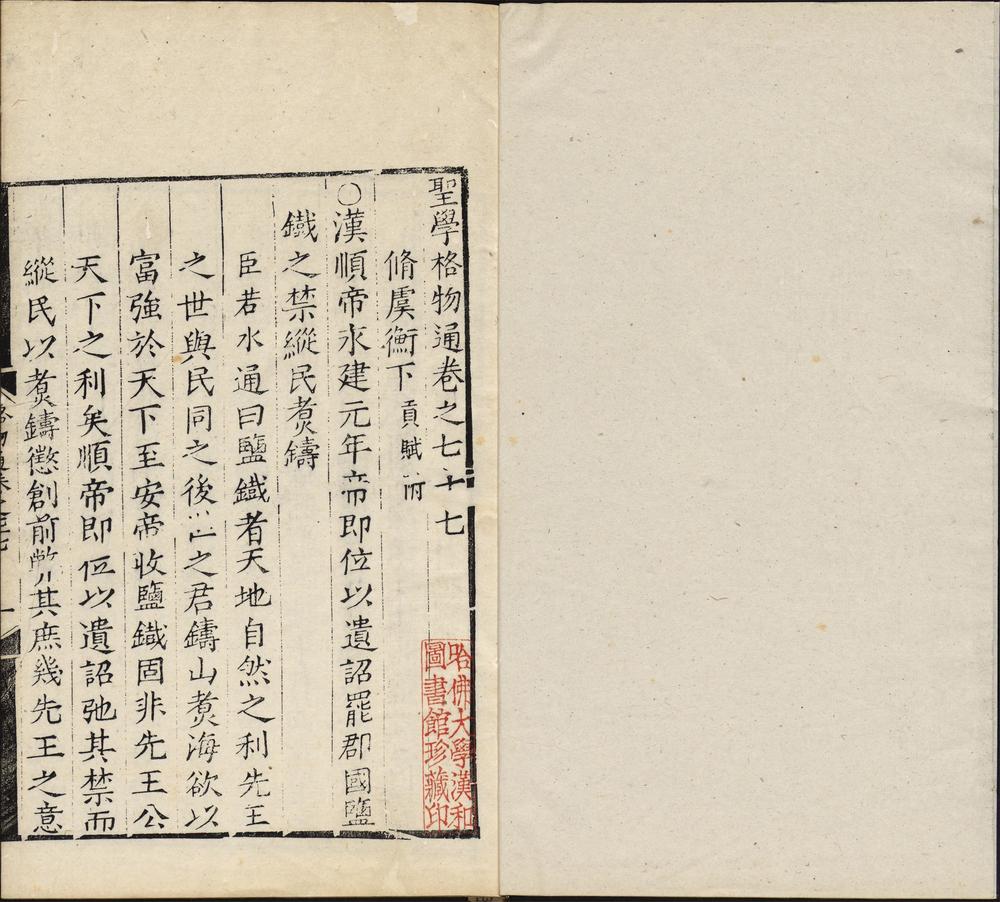 聖學格物通卷之七十七
脩虞衡下貢賦附
○漢順帝永建元年帝即位以遺詔罷郡國鹽
鐵之禁縱民煑鑄
臣若水通曰鹽鐵者天地自然之利先王
之世與民同之後世之君鑄山煑海欲以
富強於天下至安帝收鹽鐵固非先王公
天下之利矣順帝即位以遺詔弛其禁而
縱民以煑鑄懲創前弊其庶幾先王之意
哈佛大學漢和
圖書館珍藏印